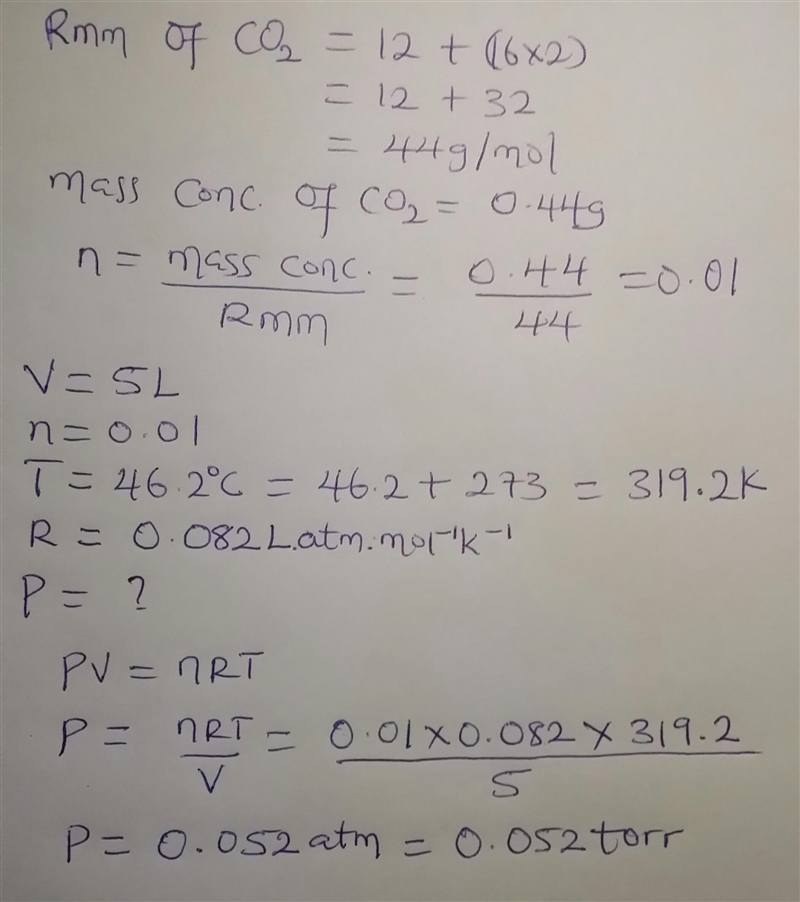 Rmm of CO₂ = 12 + (16×2)
= 12 + 32
= 44g/mol
mass conc. of CO₂ = 0.44g
n = mass conc./Rmm = 0.44/44 = 0.01
V = 5L
n = 0.01
T = 46.2°C = 46.2 + 273 = 319.2K
R = 0.082L.atm.mol⁻¹K⁻¹
P = ?
PV = nRT
P = nRT/V = 0.01×0.082×319.2/5
P = 0.052atm = 0.052torr